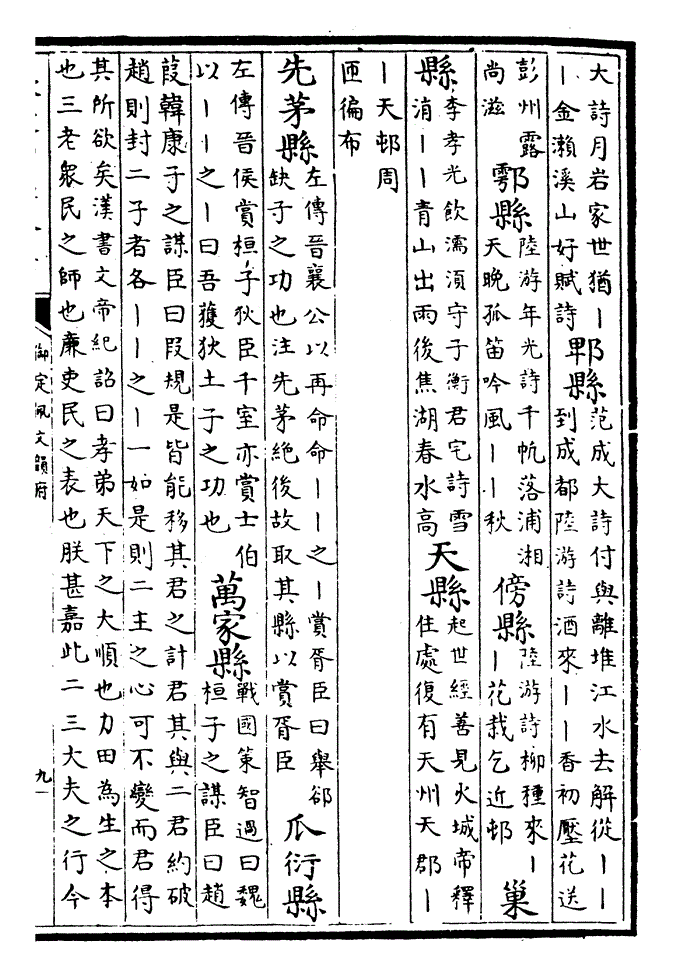 大詩月岩家世猶丨
丨金瀨溪山好賦詩
郫縣
范成大詩付與離堆江水去解從丨丨
到成都陸游詩酒來丨丨香初壓花送
彭州露
尚滋
鄠縣
陸游年光詩千帆落浦湘
天晚孤笛吟風丨丨秋
傍縣
陸游詩柳種來丨
丨花栽乞近邨
巢
縣
李孝光飲濡須守子衡君宅詩雪
消丨丨青山出雨後焦湖春水高
天縣
起世經善見大城帝釋
住處復有天州天郡丨
丨天邨周
匝徧布
先茅縣
左傳晉襄公以再命命丨丨之丨賞胥臣曰舉郤
缺子之功也注先茅絕後故取其縣以賞胥臣
瓜衍縣
左傳晉侯賞桓子狄臣千室亦賞士伯
以丨丨之丨曰吾獲狄土子之功也
萬家縣
戰國策智過曰魏
桓子之謀臣曰趙
葭韓康子之謀臣曰叚規是皆能移其君之計君其與二君約破
趙則封二子者各丨丨之丨一如是則二主之心可不變而君得
其所欲矣漢書文帝紀詔曰孝弟天下之大順也力田為生之本
也三老眾民之師也廉吏民之表也朕甚嘉此二三大夫之行今
御定佩文韻府
九一